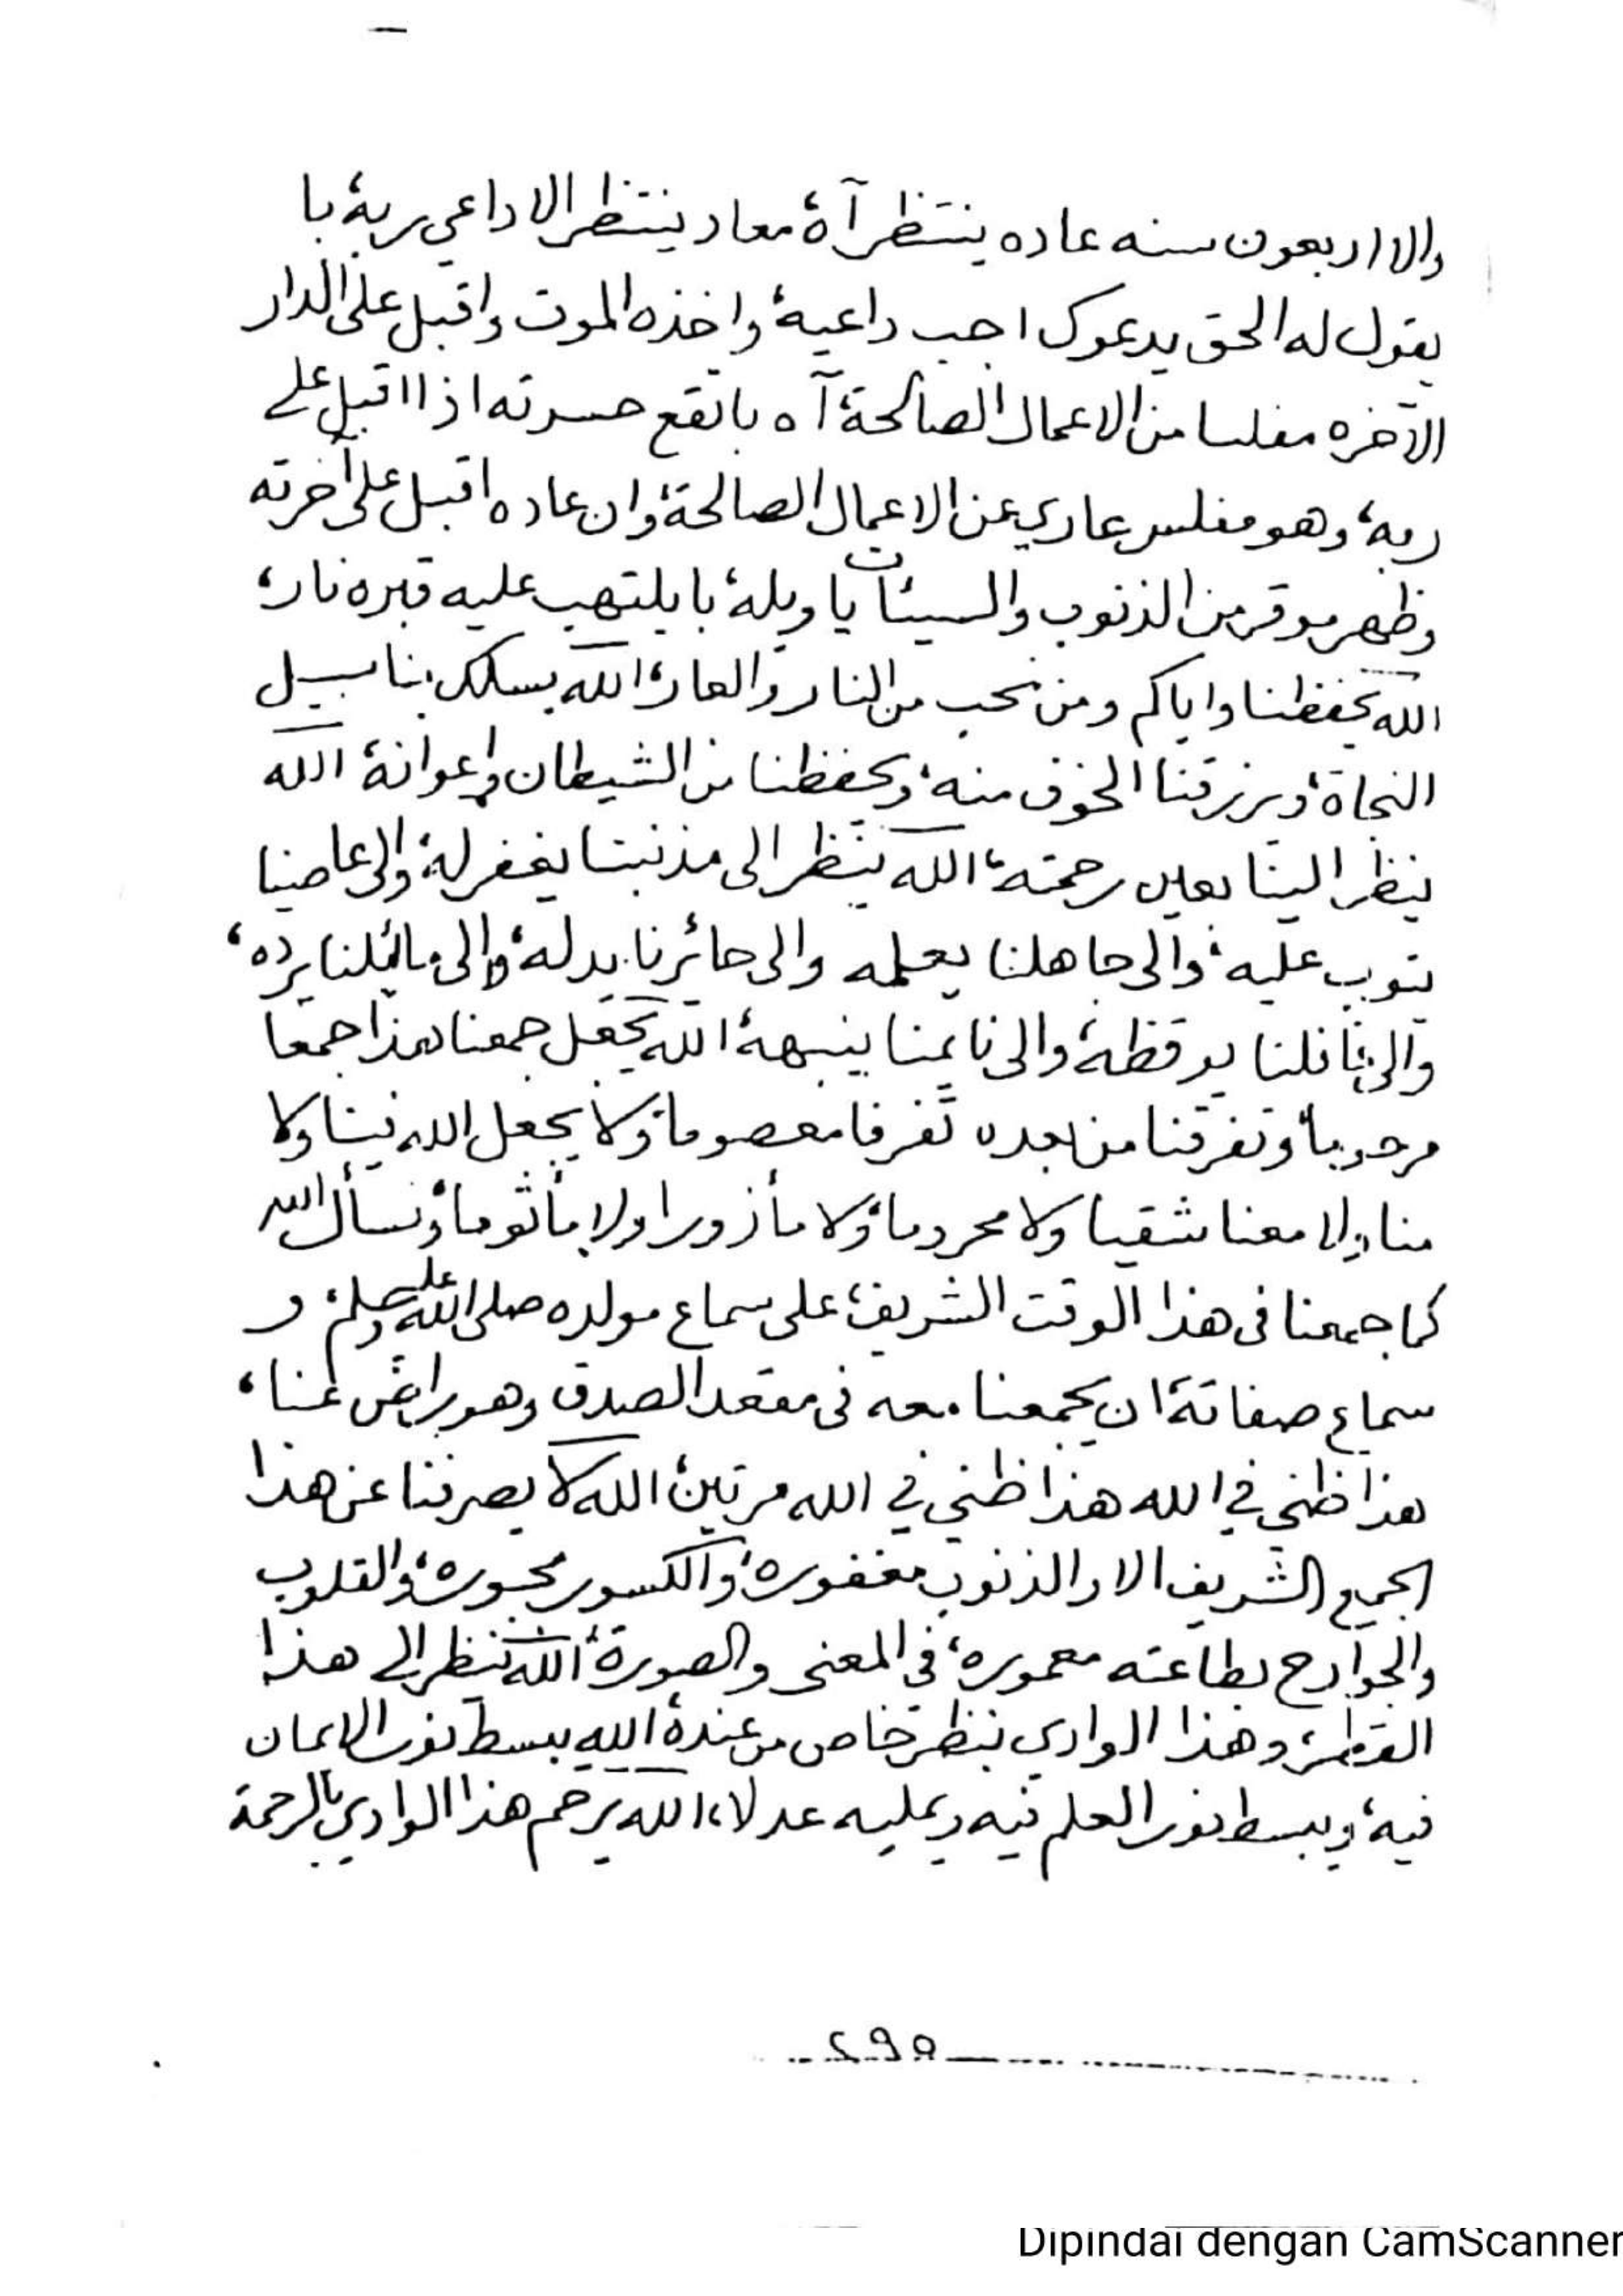 والا اربعون سنه عاده ينتظر آه، معاد ينتظر الا داعي ربه، با
يقول له الحق يدعوك اجب داعيه، واخذه الموت واقبل على الدار
الآخره مفلسا من الاعمال الصالحة، آه باتقع حسرته اذا اقبل على
ربه، وهو مفلس عاري عن الاعمال الصالحة، وان عاده اقبل على آخرته
وظهر موقر من الذنوب والسيئات يا ويله، با يلتهب عليه قبره نار،
الله يحفظنا واياكم ومن نحب من النار والعار، الله يسلك بنا سبيل
النجاة، ويرزقنا الخوف منه، ويحفظنا من الشيطان واعوانه، الله
ينظر الينا بعين رحمته، الله ينظر الى مذنبنا يغفر له، والى عاصينا
يتوب عليه، والى جاهلنا يعلمه والى حائرنا يدله، والى مائلنا يرده،
والى غافلنا يوقظه، والى نائمنا ينبهه، الله يجعل جمعنا هذا جمعا
مرحوما، وتفرقنا من بعده تفرقا معصوما، ولا يجعل الله فينا ولا
منا ولا معنا شقيا ولا محروما، ولا مأزورا ولا مأثوما، ونسأل الله
كما جمعنا في هذا الوقت الشريف، على سماع مولده صلى الله عليه وسلم، و
سماع صفاته، ان يجمعنا معه في مقعد الصدق وهو راض عنا،
هذا ظني في الله هذا ظني في الله مرتين، الله لا يصرفنا عن هذا
الجمع الشريف الا والذنوب مغفوره، والكسور مجبوره، والقلوب
والجوارح بطاعته معموره، في المعنى والصورة، الله ينظر الى هذا
القطر، وهذا الوادي بنظر خاص من عنده، الله يبسط نور الايمان
فيه، ويبسط نور العلم فيه ويمليه عدلا، الله يرحم هذا الوادي بالرحمة
٢٩٥
Dipindai dengan CamScanner